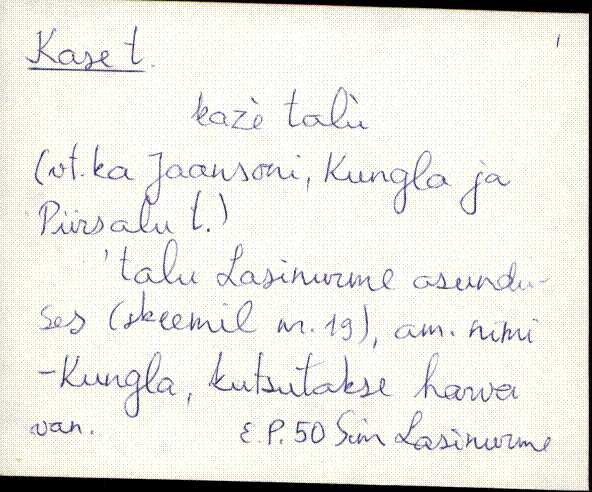 Kase t.
kazè talù
(vt. ka Jaansoni, Kungla ja
Piirsalu t.)
'talu Lasinurme asundu-
ses (skeemil nr. 19), am. nimi
-Kungla, kutsutakse harva
van. E.P. 50 Sim Lasinurme